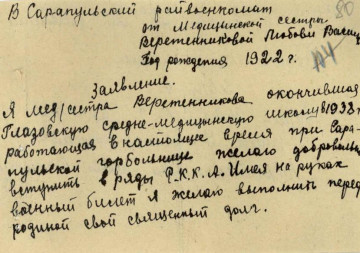 80
В Сарапульский райвоенкомат
от медицинской сестры
Веретенниковой Любови Васил
Год рождения 1922 г.
Заявление.
Я мед/сестра Веретенникова окончившая
Глазовскую средне-медицинскую школу в 1933 г
работающая в настоящее время при Сара-
пульской горбольнице желаю добровольно
вступить в ряды Р.К.К.А. Имея на руках
военный билет я желаю выполнить перед
родиной свой священный долг.